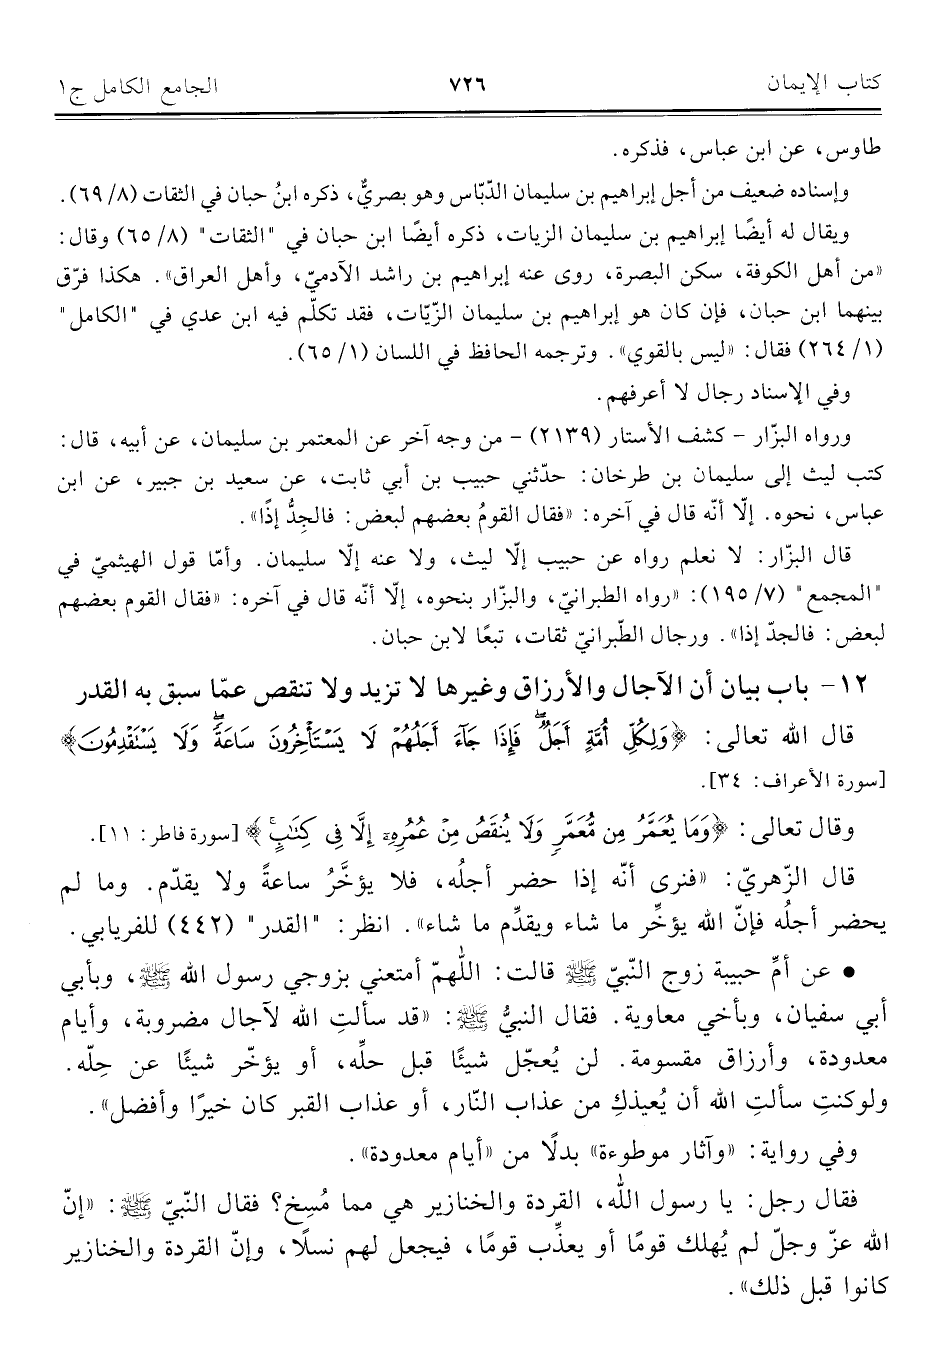 كتاب الإيمان ٧٢٦ الجامع الكامل ج١
طاوس، عن ابن عباس، فذكره.
وإسناده ضعيف من أجل إبراهيم بن سليمان الدّبّاس وهو بصريٌّ، ذكره ابنُ حبان في الثقات (٨/ ٦٩).
ويقال له أيضًا إبراهيم بن سليمان الزيات، ذكره أيضًا ابن حبان في "الثقات" (٨/ ٦٥) وقال:
«من أهل الكوفة، سكن البصرة، روى عنه إبراهيم بن راشد الآدميّ، وأهل العراق». هكذا فرّق
بينهما ابن حبان، فإن كان هو إبراهيم بن سليمان الزّيّات، فقد تكلّم فيه ابن عدي في "الكامل"
(١/ ٢٦٤) فقال: «ليس بالقوي». وترجمه الحافظ في اللسان (١/ ٦٥).
وفي الإسناد رجال لا أعرفهم.
ورواه البزّار - كشف الأستار (٢١٣٩) - من وجه آخر عن المعتمر بن سليمان، عن أبيه، قال:
كتب ليث إلى سليمان بن طرخان: حدّثني حبيب بن أبي ثابت، عن سعيد بن جبير، عن ابن
عباس، نحوه. إلّا أنّه قال في آخره: «فقال القومُ بعضهم لبعض: فالجِدُّ إذًا».
قال البزّار: لا نعلم رواه عن حبيب إلّا ليث، ولا عنه إلّا سليمان. وأمّا قول الهيثميّ في
"المجمع" (٧/ ١٩٥): «رواه الطبرانيّ، والبزّار بنحوه، إلّا أنّه قال في آخره: «فقال القوم بعضهم
لبعض: فالجدّ إذا». ورجال الطّبرانيّ ثقات، تبعًا لابن حبان.
١٢- باب بيان أن الآجال والأرزاق وغيرها لا تزيد ولا تنقص عمّا سبق به القدر
قال الله تعالى: ﴿وَلِكُلِّ أُمَّةٍ أَجَلٌۖ فَإِذَا جَآءَ أَجَلُهُمْ لَا يَسْتَأْخِرُونَ سَاعَةًۖ وَلَا يَسْتَقْدِمُونَ﴾
[سورة الأعراف: ٣٤].
وقال تعالى: ﴿وَمَا يُعَمَّرُ مِن مُّعَمَّرٍ وَلَا يُنقَصُ مِنْ عُمُرِهِۦٓ إِلَّا فِى كِتَٰبٍۚ﴾ [سورة فاطر: ١١].
قال الزّهريّ: «فنرى أنّه إذا حضر أجلُه، فلا يؤخَّرُ ساعةً ولا يقدّم. وما لم
يحضر أجلُه فإنّ الله يؤخِّر ما شاء ويقدِّم ما شاء». انظر: "القدر" (٤٤٢) للفريابي.
• عن أمِّ حبيبة زوج النبيّ ﷺ قالت: اللّهمّ أمتعني بزوجي رسول الله ﷺ، وبأبي
أبي سفيان، وبأخي معاوية. فقال النبيُّ ﷺ: «قد سألتِ الله لآجال مضروبة، وأيام
معدودة، وأرزاق مقسومة. لن يُعجّل شيئًا قبل حلِّه، أو يؤخّر شيئًا عن حِلّه.
ولوكنتِ سألتِ الله أن يُعيذكِ من عذاب النّار، أو عذاب القبر كان خيرًا وأفضل».
وفي رواية: «وآثار موطوءة» بدلًا من «أيام معدودة».
فقال رجل: يا رسول اللّه، القردة والخنازير هي مما مُسِخ؟ فقال النّبيّ ﷺ: «إنّ
الله عزّ وجلّ لم يُهلك قومًا أو يعذِّب قومًا، فيجعل لهم نسلًا، وإنّ القردة والخنازير
كانوا قبل ذلك».